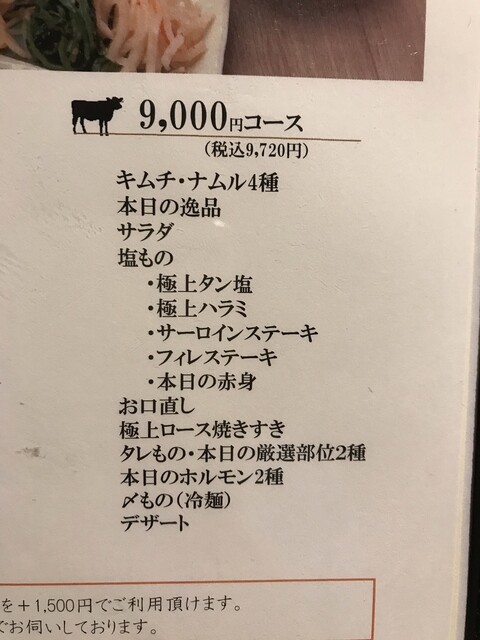 9,000円コース
(税込9,720円)
キムチ・ナムル4種
本日の逸品
サラダ
塩もの
・極上タン塩
・極上ハラミ
・サーロインステーキ
・フィレステーキ
・本日の赤身
お口直し
極上ロース焼きすき
タレもの・本日の厳選部位2種
本日のホルモン2種
〆もの(冷麺)
デザート
を＋1,500円でご利用頂けます。
でお伺いしております。